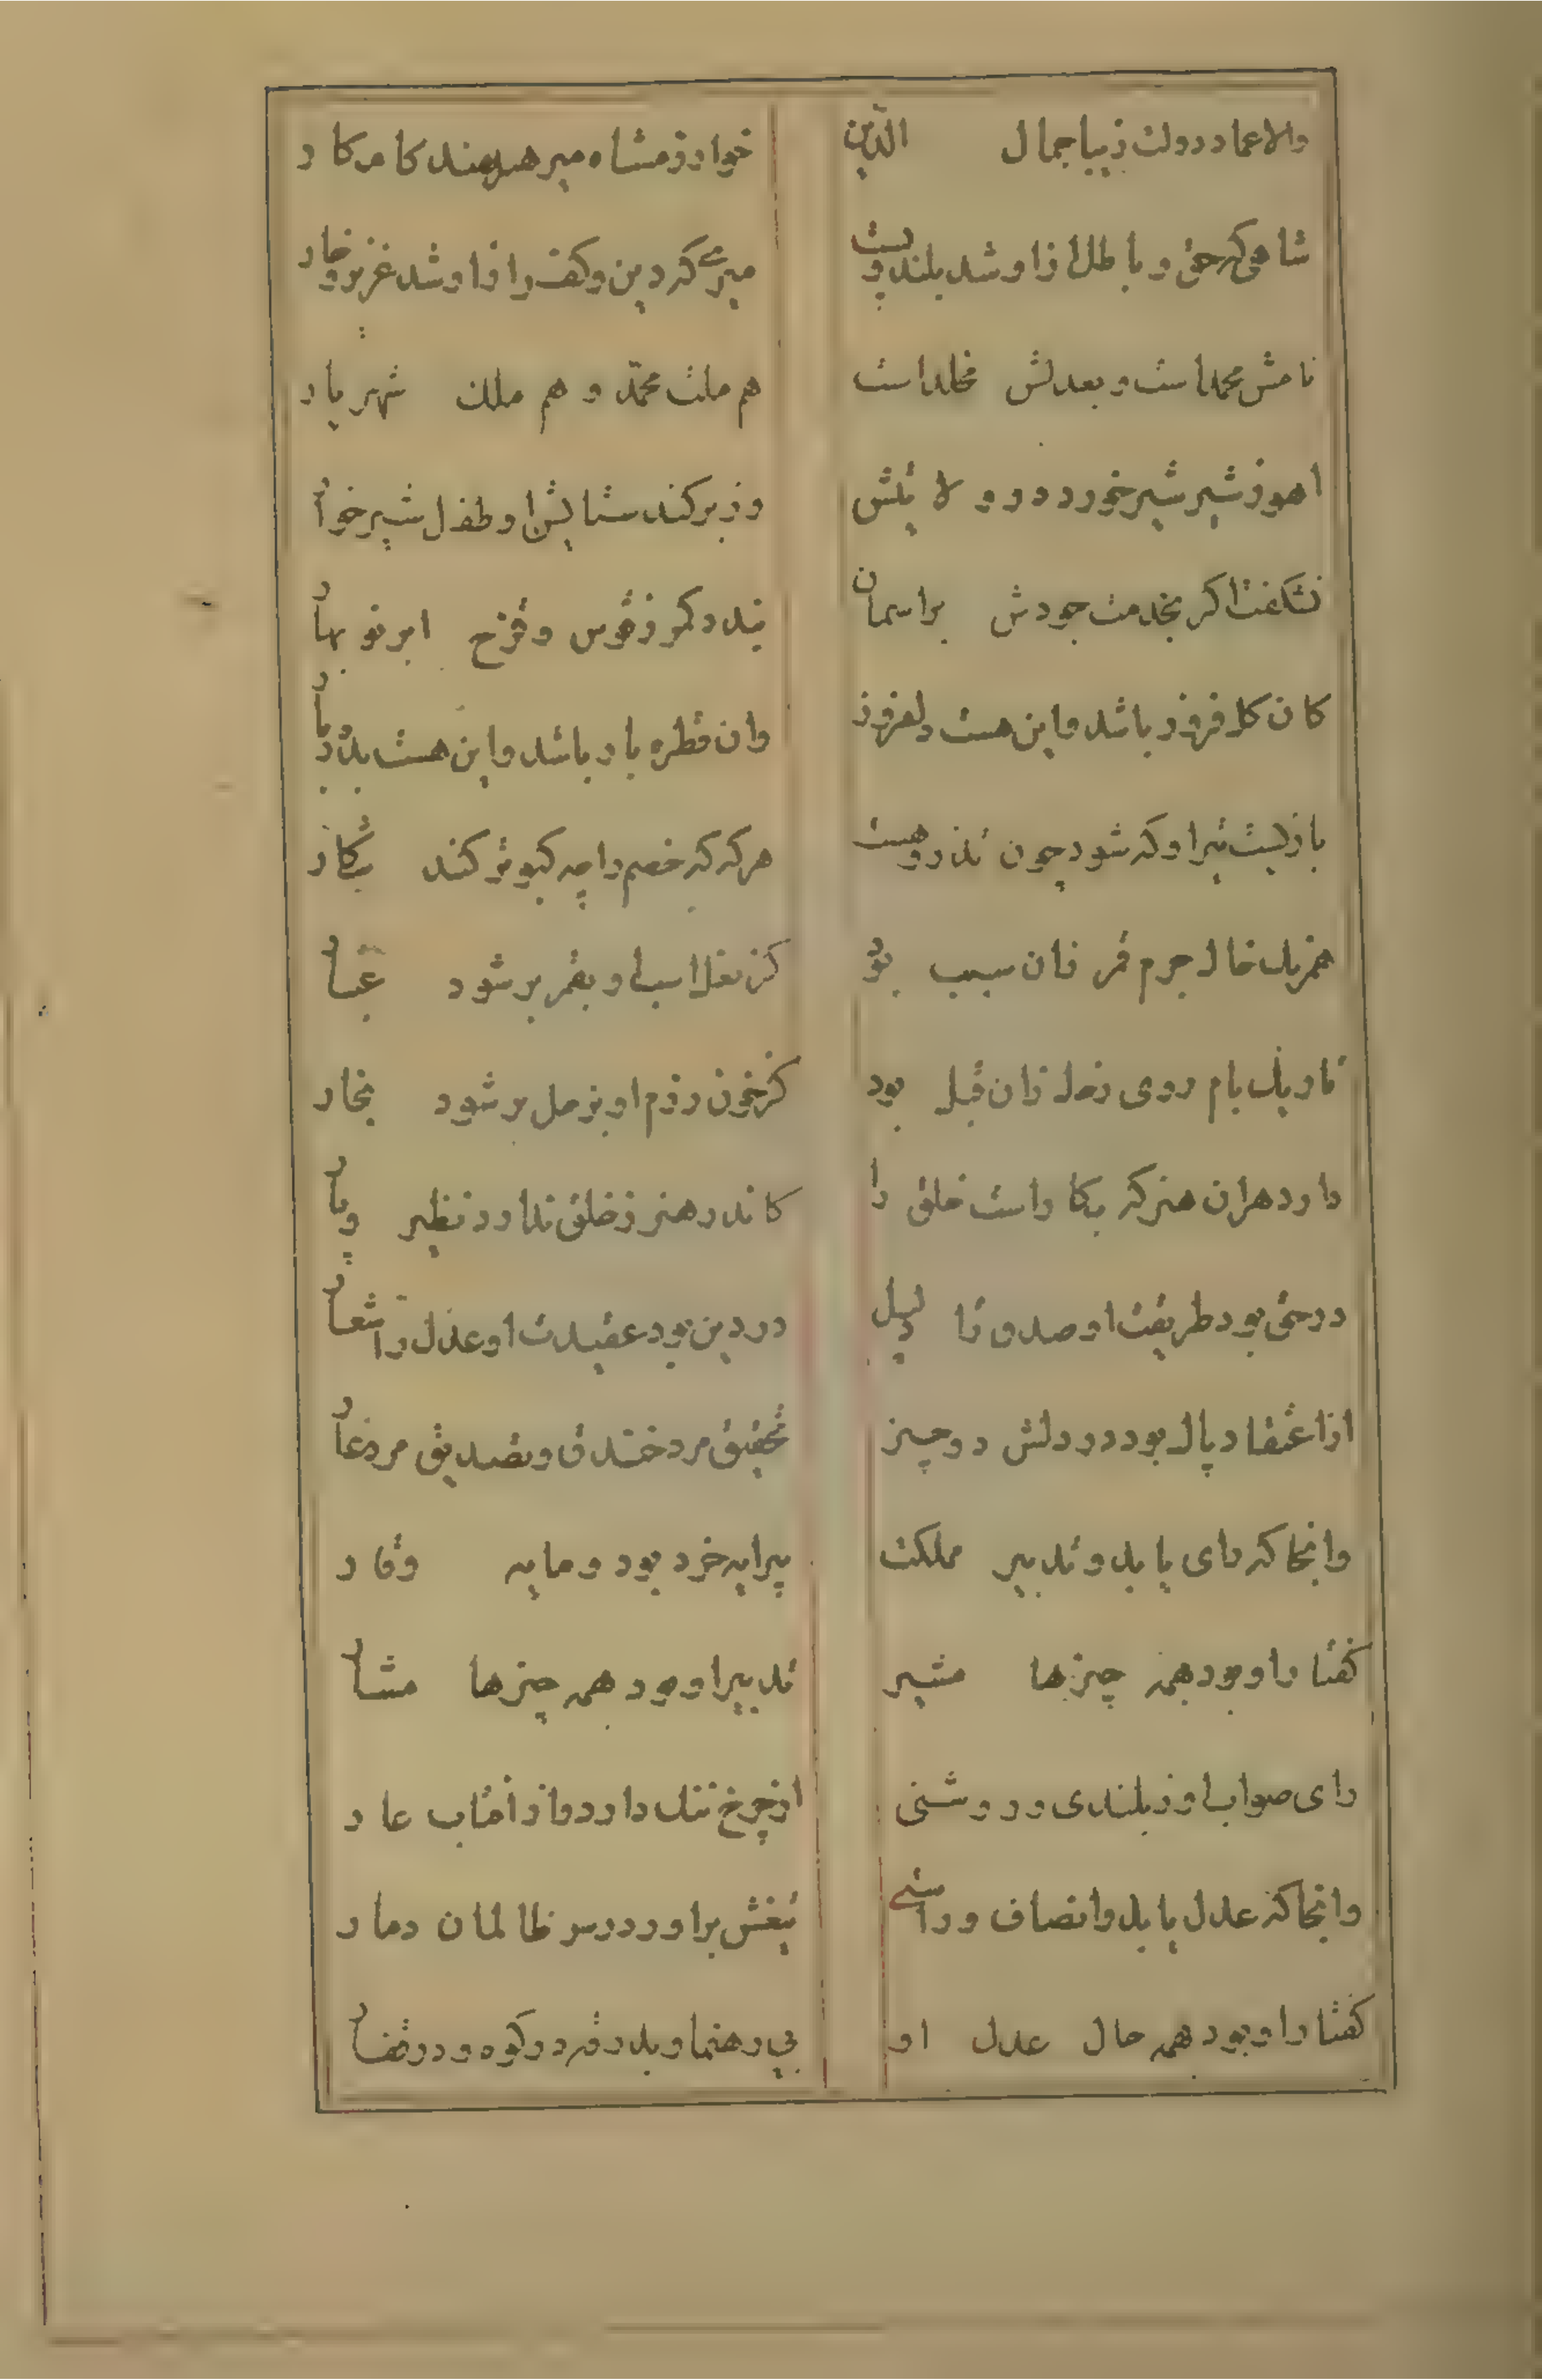 والا عماد دولت زیبا جمال الدین
خوارزمشاه میر هنرمند کامرکار
شاهی که حق و باطل ازو شد بلند و پست
میری که دین و کفر ازو شد عزیز و خوار
نامش محمد است و بعدلش مخلد است
هم ملت محمّد و هم ملک شهریار
اهو ز شیر شیر خورد در ولایتش
وز بر کند ستایش او طفل شیرخوار
نشکفت اکر بخدمت جودش بر اسمان
بندد کمر ز قوس و قزح ابر نوبهار
کان کل فروز باشد و این هست دلفروز
وان قطره بار باشد و این هست بدره بار
بازیست تیر او که شود چون تذرو هست
هر که که خصم را چو کبوتر کند شکار
همرنک خال جرم قمر زان سبب بود
کز نعل اسب او بقمر بر شود غبار
تاریک بام روی زحل زان قبل بود
کز خون رزم او بزحل بر شود بخار
دارد هران هنر که بکار است خلق را
کاندر هنر ز خلق ندارد نظیر و یار
در حق بود طریقت او صدق را دلیل
در دین بود عقیدت او عدل را شعار
از اعتقاد پاک بود در دلش دو چیز
تحقیق مرد خندق و تصدیق مرد غار
وانجا که رای باید و تدبیر مملکت
پیرایه خرد بود و مایه وقار
کفتار او بود بهمه چیزها مشیر
تدبیر او بود همه چیزها مشار
رای صواب او ز بلندی و روشنی
از چرخ ننک دارد و از افتاب عار
وانجا که عدل باید و انصاف و راستی
تیغش براورد ز سر ظالمان دمار
کفتار او بود همه حال عدل او
بی رهنما و بدرقه در کوه و در قفار